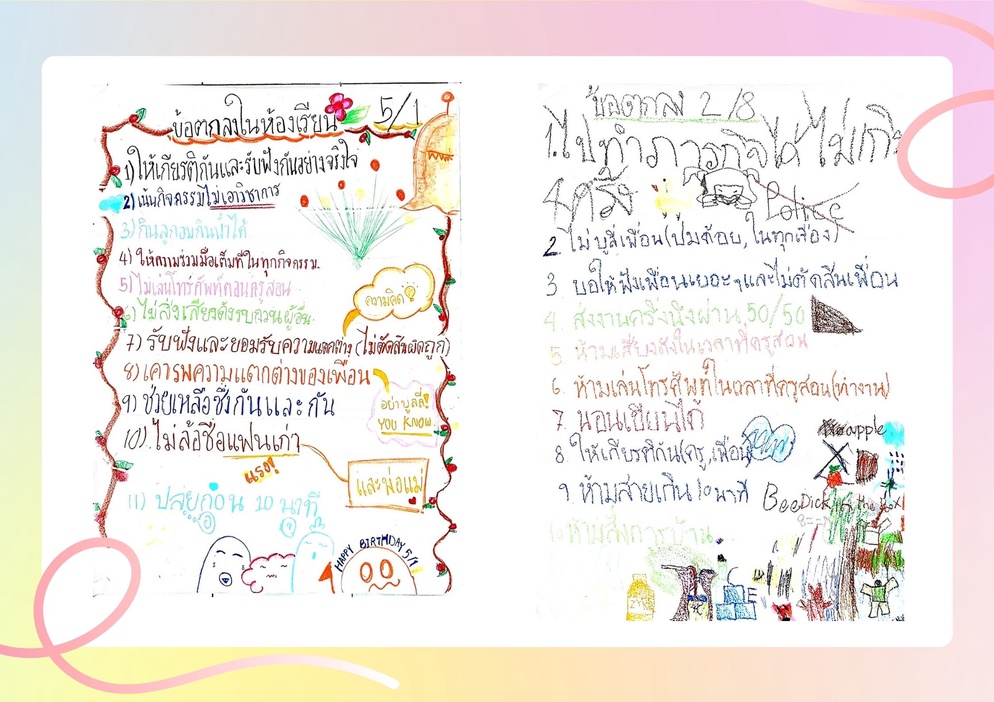 ข้อตกลงในห้องเรียน 5/1
1) ให้เกียรติกันและรับฟังกันอย่างจริงใจ
2) เน้นกิจกรรมไม่เอาวิชาการ
3) กินลูกอมกินน้ำได้
4) ให้ความร่วมมือเต็มที่ในทุกกิจกรรม.
5) ไม่เล่นโทรศัพท์ตอนครูสอน
6) ไม่ส่งเสียงดังรบกวนผู้อื่น
7) รับฟังและยอมรับความแตกต่าง (ไม่ตัดสินผิดถูก)
8) เคารพความแตกต่างของเพื่อน
9) ช่วยเหลือซึ่งกันและกัน
10) ไม่ล้อชื่อแฟนเก่า
11) ปล่อยก่อน 10 นาที
ความคิด
อย่าบูลลี่!
YOU KNOW
แรง!
และพ่อแม่
HAPPY BIRTHDAY 5/1
ข้อตกลง 2/8
1. ไปทำภารกิจได้ ไม่เกิน
4 ครั้ง
Police
2. ไม่บูลี่เพื่อน(ปมด้อย,ในทุกเรื่อง)
3. ขอให้ฟังเพื่อนเยอะๆและไม่ตัดสินเพื่อน
4. ส่งงานครึ่งนึงผ่าน 50/50
5. ห้ามเสียงดังในเวลาที่ครูสอน
6. ห้ามเล่นโทรศัพท์ในเวลาที่ครูสอน(ทำงาน)
7. นอนเขียนได้
8 ให้เกียรติกัน(ครู,เพื่อน)
9 ห้ามสายเกิน 10 นาที
10 ห้ามสั่งการบ้าน
apple
BeeDick in the box